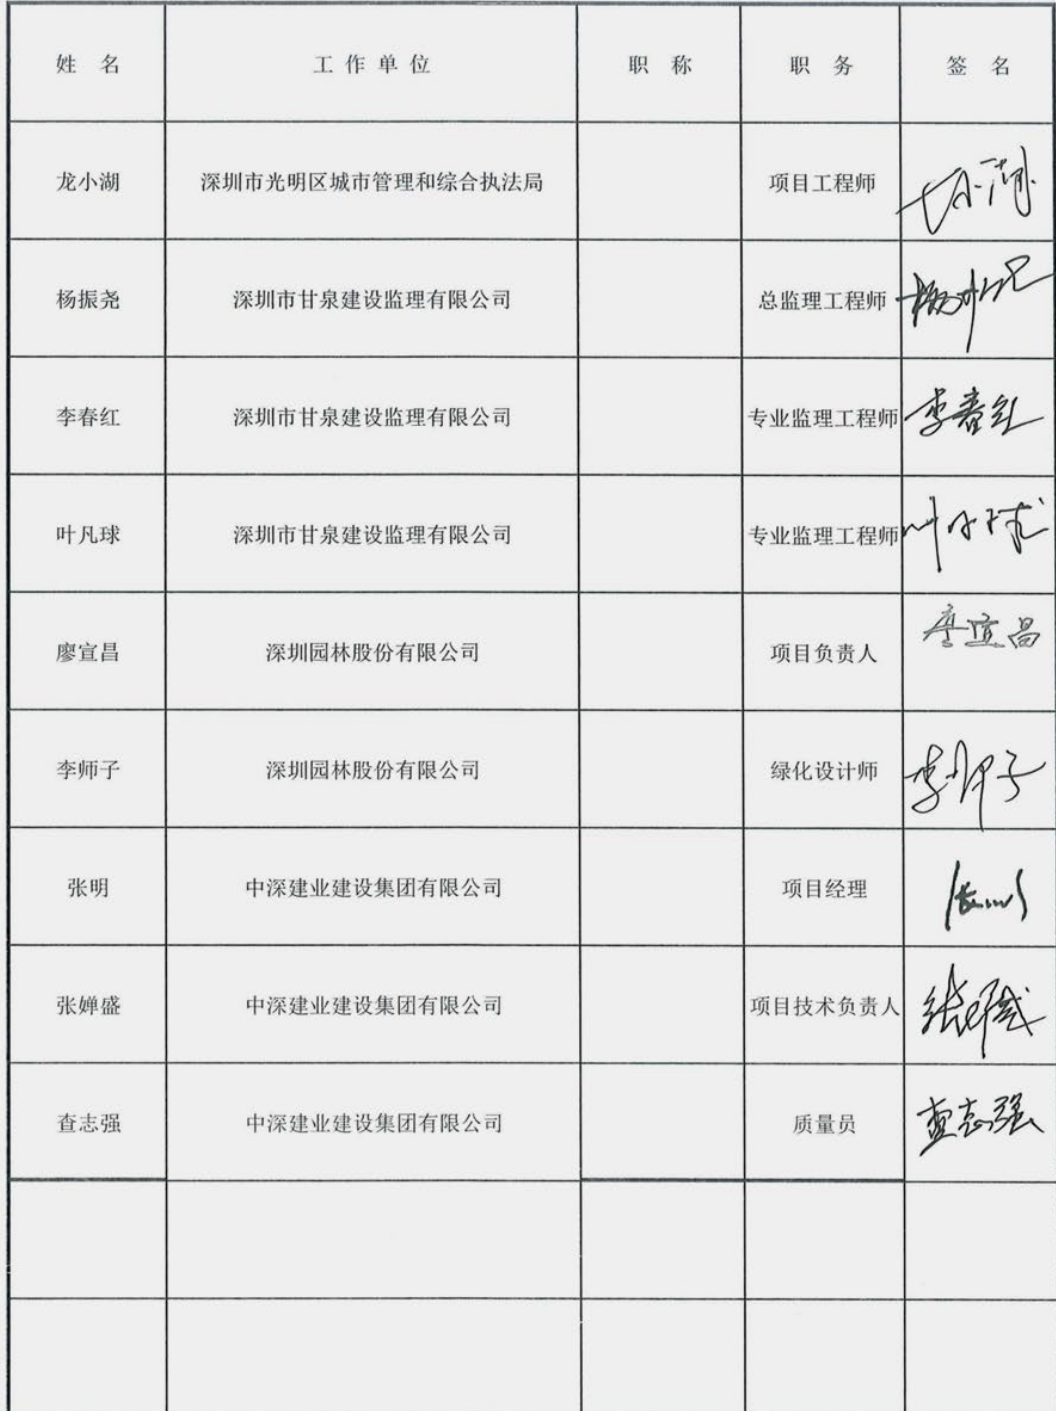 姓 名 工作单位 职 称 职 务 签 名
龙小湖 深圳市光明区城市管理和综合执法局 项目工程师
杨振尧 深圳市甘泉建设监理有限公司 总监理工程师
李春红 深圳市甘泉建设监理有限公司 专业监理工程师 李春红
叶凡球 深圳市甘泉建设监理有限公司 专业监理工程师 叶凡球
廖宣昌 深圳园林股份有限公司 项目负责人 廖宣昌
李师子 深圳园林股份有限公司 绿化设计师 李师子
张明 中深建业建设集团有限公司 项目经理
张婵盛 中深建业建设集团有限公司 项目技术负责人
查志强 中深建业建设集团有限公司 质量员 查志强